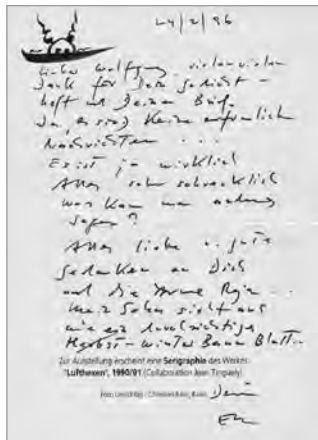 24/2/96
Lieber Wolfgang vielen vielen
Dank für Dein Gedicht –
heft und Deinen Brief.
Ja, es sind keine erfreulich
Nachrichten ...
Es ist ja wirklich
Alles sehr schrecklich
was kan man anderes
sagen?
Alles liebe u. gute
Gedanken an Dich
und die Arme
Mein Sohn sieht aus
wie ein durchsichtiges
Herbst – winter Baum Blatt.
Zur Ausstellung erscheint eine Serigraphie des Werkes
"Lufthexen", 1990/91 (Collaboration Jean Tinguely)
Foto Umschlag: Christian Baur, Basel